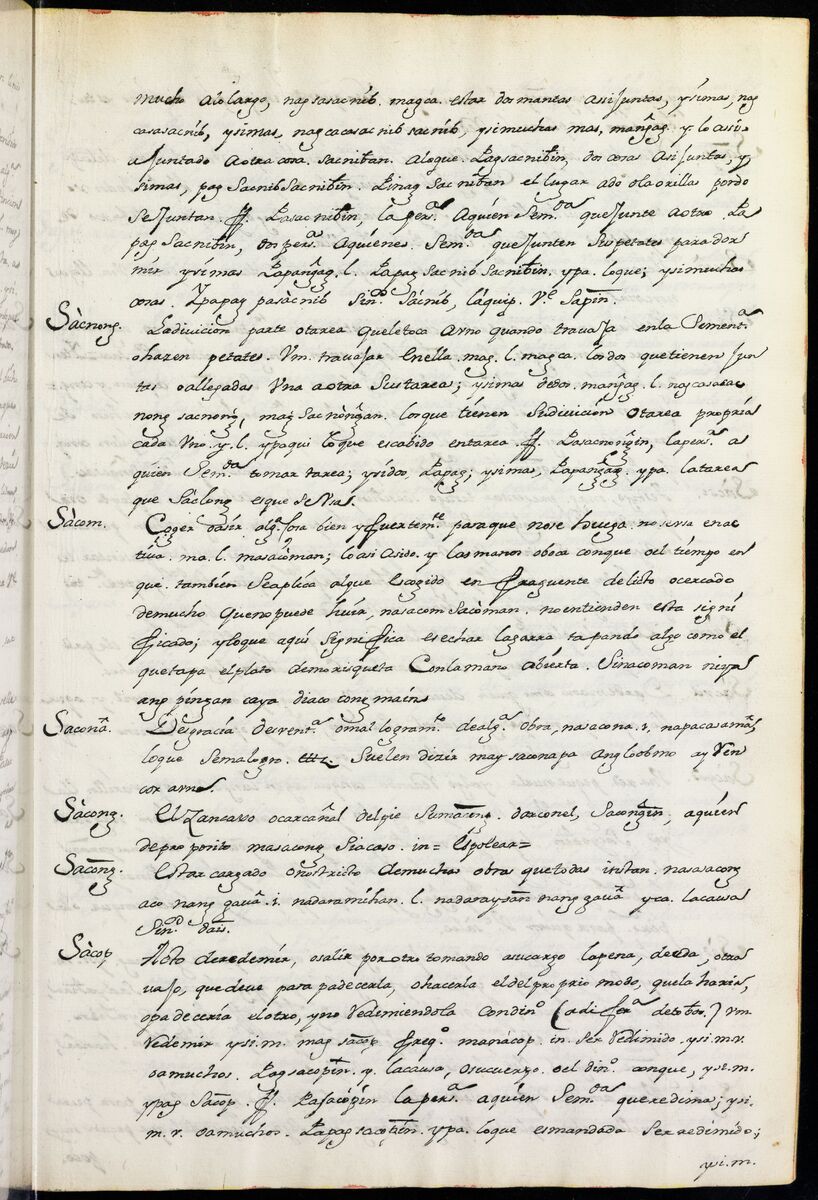 mucho alo largo, nagsasacnib. magca. estar dos mantas assi juntas, ysimas, nag
casasacnib, ysimas, nagcacasacnib sacnib, ysi muchas mas, mangag. y. lo assi.
ajuntado aotra cosa. sacniban. aloque. Pagsacnibin, dos cosas asi juntas, y
simas, pag sacnib sacnibin. Pinag sacniban el lugar ado olas orillas pordo
se juntan. ff. Pasacnibin, la persª. aquien Semda. que junte aotro. Pa
pag sacnibin, dos persª. aquienes. Semda. que junten sus petates para dor
mir ysimas Papangag. l. Papag sacnib sacnibin. ypa. loque; ysi muchas
cosas. Ypapag pasàcnib Sino. Sácnib, láquip. Ve. Sapin.
Sàcnong. La divicion parte otarea que le toca auno quando travaja en la Sementª.
o hazen petates. Vm. travajar en ella. mag. l. magca. los dos que tienen jun
tas o allegadas una aotra sus tareas; ysimas de dos. mangag. l. nagcasasac
nong sacnong, mag sacnòngan. los que tienen su divición otarea propria
cada uno. y. l. ypaqui lo que es cabido en tarea. ff. Pasacnongin, la persª. a
quien Semda. tomar tarea; ysi dos. Papag; ysimas, Papangag. ypa. la tarea
que Sàclong es que se usa.
Sàcom. Coger o asir algª. cosa bien y fuertemte. para que no se huiga. no se usa en ac
tiva. ma. l. masacòman; lo asi asido. y. las manos o boca con que o el tiempo en
que. tambien se aplica al que es cogido en fraguente delicto o cercado
de mucho que no puede huir, nasacom sacòman. no entienden esta signi
ficado; y lo que aqui significa es echar la garra tapando algo como el
que tapa el plato de morisqueta con la mano abierta. Sinacoman niya
ang pingan caya diaco cong main
Saconã. Desgracia desventª. o mal logramto. de algª. obra, nasacona. i. napacasamã
loque se malogro. Suelen dizir may saconapa ang loobmo ay Ven
cor amo.
Sàcong. El zancajo o carcañal del pie Sumacong. dar con el, Sacongin, aquien
de proposito masacong si acaso. in= Espolear=
Sacong. Estar cargado o restricto de muchas obras que todas instan. nasasacong
aco nang gauã. i. nadaramihan. l. nadaraysan nang gauã yca. la causa
Sino. dais.
Sàcop, Acto de redemir, o salir por otro tomando a su cargo la pena, deuda, otra
vajo, que deve para padecerla, o hacerla el del proprio modo, que la haria,
o padeceria el otro, y no Redemiendola con dino (a difera de tobos.) Vm.
Redemir ysi.m. mag sacop freqo. manàcop. in. ser Redimido. ysi.m.r.
o a muchos. Pagsacopin. y. la causa, o su cuerpo. o el dino. con que, ysi.m.
ypag sacop. ff. Pasacópin la persª. aquien Semda. que redima; ysi.
m.r. o a muchos. Papag sacopin. ypa. lo que es mandada ser redimido;
ysi.m.